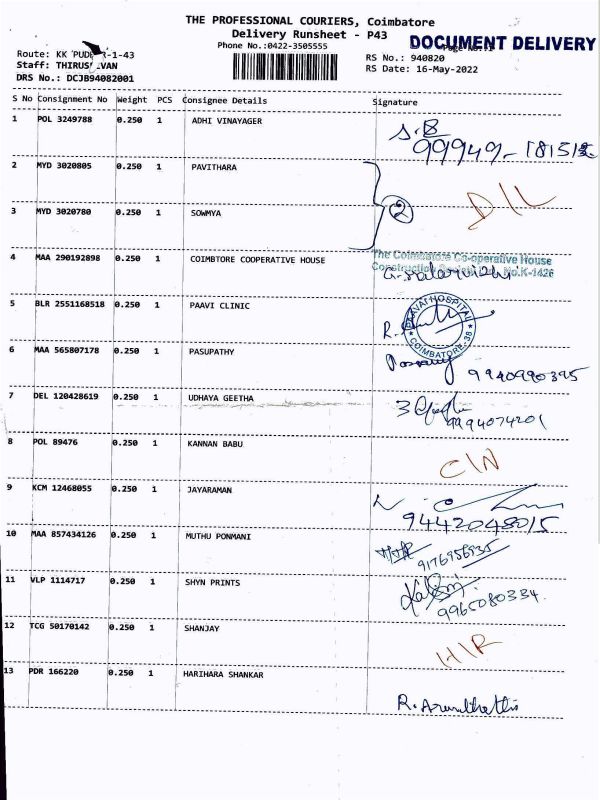 THE PROFESSIONAL COURIERS, Coimbatore
Delivery Runsheet - P43
Phone No.:0422-3505555
DOCUMENT DELIVERY
Route: KK PUD -1-43
Staff: THIRUS VAN
DRS No.: DCJB94082001
RS No.: 940820
RS Date: 16-May-2022
S No Consignment No Weight PCS Consignee Details Signature
1 POL 3249788 0.250 1 ADHI VINAYAGER
2 MYD 3020805 0.250 1 PAVITHARA
3 MYD 3020780 0.250 1 SOWMYA
2
D/L
4 MAA 290192898 0.250 1 COIMBTORE COOPERATIVE HOUSE
The Coimbatore Co-operative House
Construction No.K-1426
5 BLR 2551168518 0.250 1 PAAVI CLINIC
PAAVAI HOSPITAL
COIMBATORE-38
6 MAA 565807178 0.250 1 PASUPATHY
9940990395
7 DEL 120428619 0.250 1 UDHAYA GEETHA
9994074201
8 POL 89476 0.250 1 KANNAN BABU
C/N
9 KCM 12468055 0.250 1 JAYARAMAN
9442048015
10 MAA 857434126 0.250 1 MUTHU PONMANI
9176956935
11 VLP 1114717 0.250 1 SHYN PRINTS
9965080334
12 TCG 50170142 0.250 1 SHANJAY
H/R
13 PDR 166220 0.250 1 HARIHARA SHANKAR
R. Arundhathis